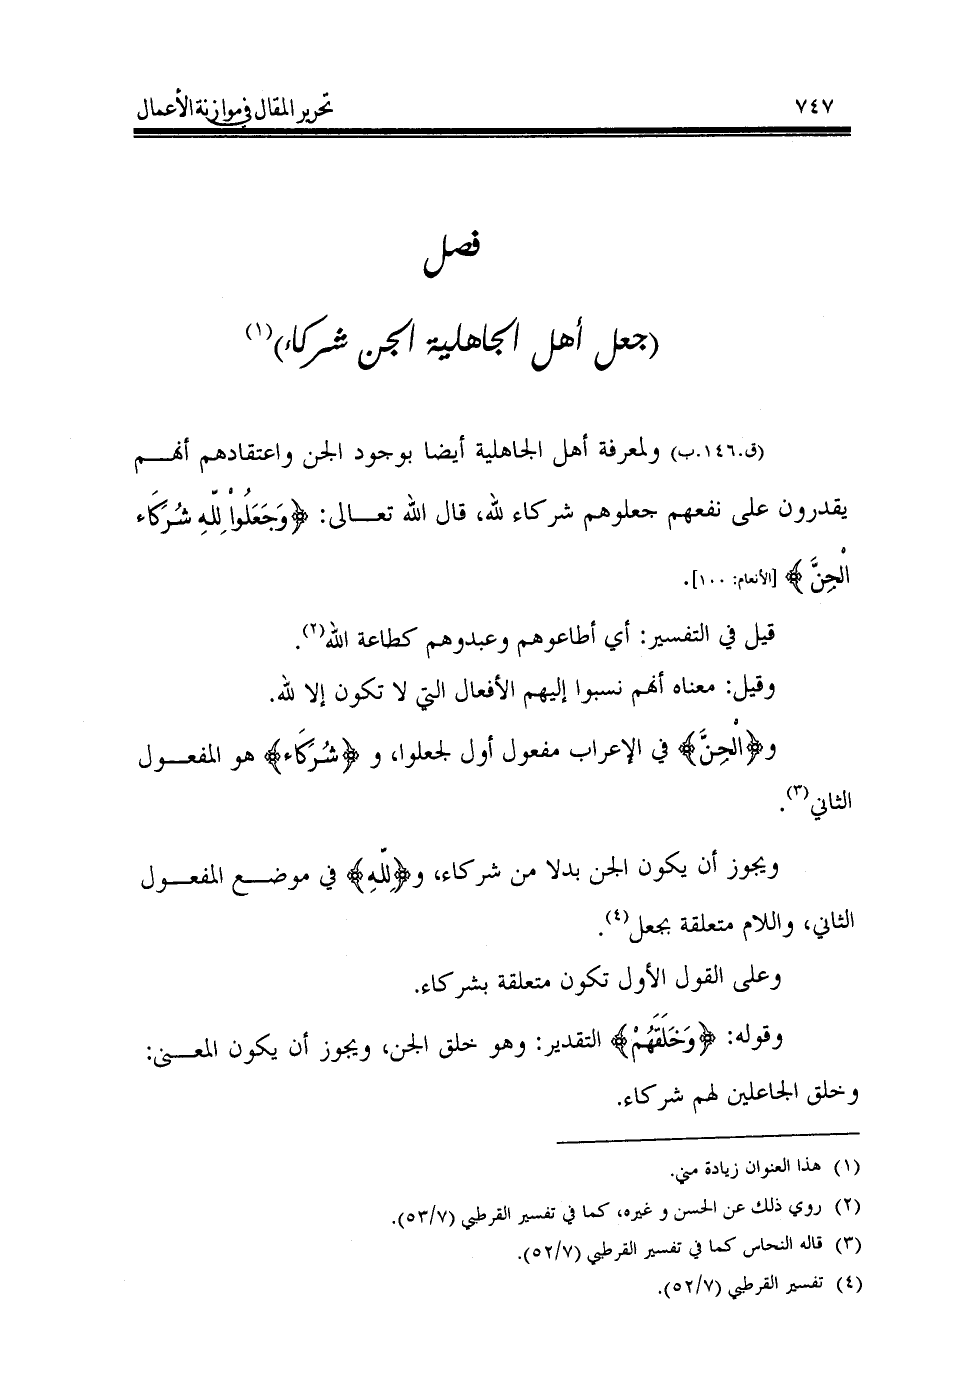 ٧٤٧
تحرير المقال في موازنة الأعمال
فصل
(جعل أهل الجاهلية الجن شركاء)(١)
(ق.١٤٦.ب) ولمعرفة أهل الجاهلية أيضا بوجود الجن واعتقادهم أنهم
يقدرون على نفعهم جعلوهم شركاء لله، قال الله تعالى: ﴿وَجَعَلُواْ لِلّهِ شُرَكَاء
الْجِنَّ﴾ [الأنعام: ١٠٠].
قيل في التفسير: أي أطاعوهم وعبدوهم كطاعة الله(٢).
وقيل: معناه أنهم نسبوا إليهم الأفعال التي لا تكون إلا لله.
و﴿الْجِنَّ﴾ في الإعراب مفعول أول لجعلوا، و ﴿شُرَكَاء﴾ هو المفعول
الثاني(٣).
ويجوز أن يكون الجن بدلا من شركاء، و﴿لِلّهِ﴾ في موضع المفعول
الثاني، واللام متعلقة بجعل(٤).
وعلى القول الأول تكون متعلقة بشركاء.
وقوله: ﴿وَخَلَقَهُمْ﴾ التقدير: وهو خلق الجن، ويجوز أن يكون المعنى:
وخلق الجاعلين لهم شركاء.
(١) هذا العنوان زيادة مني.
(٢) روي ذلك عن الحسن و غيره، كما في تفسير القرطبي (٥٣/٧).
(٣) قاله النحاس كما في تفسير القرطبي (٥٢/٧).
(٤) تفسير القرطبي (٥٢/٧).